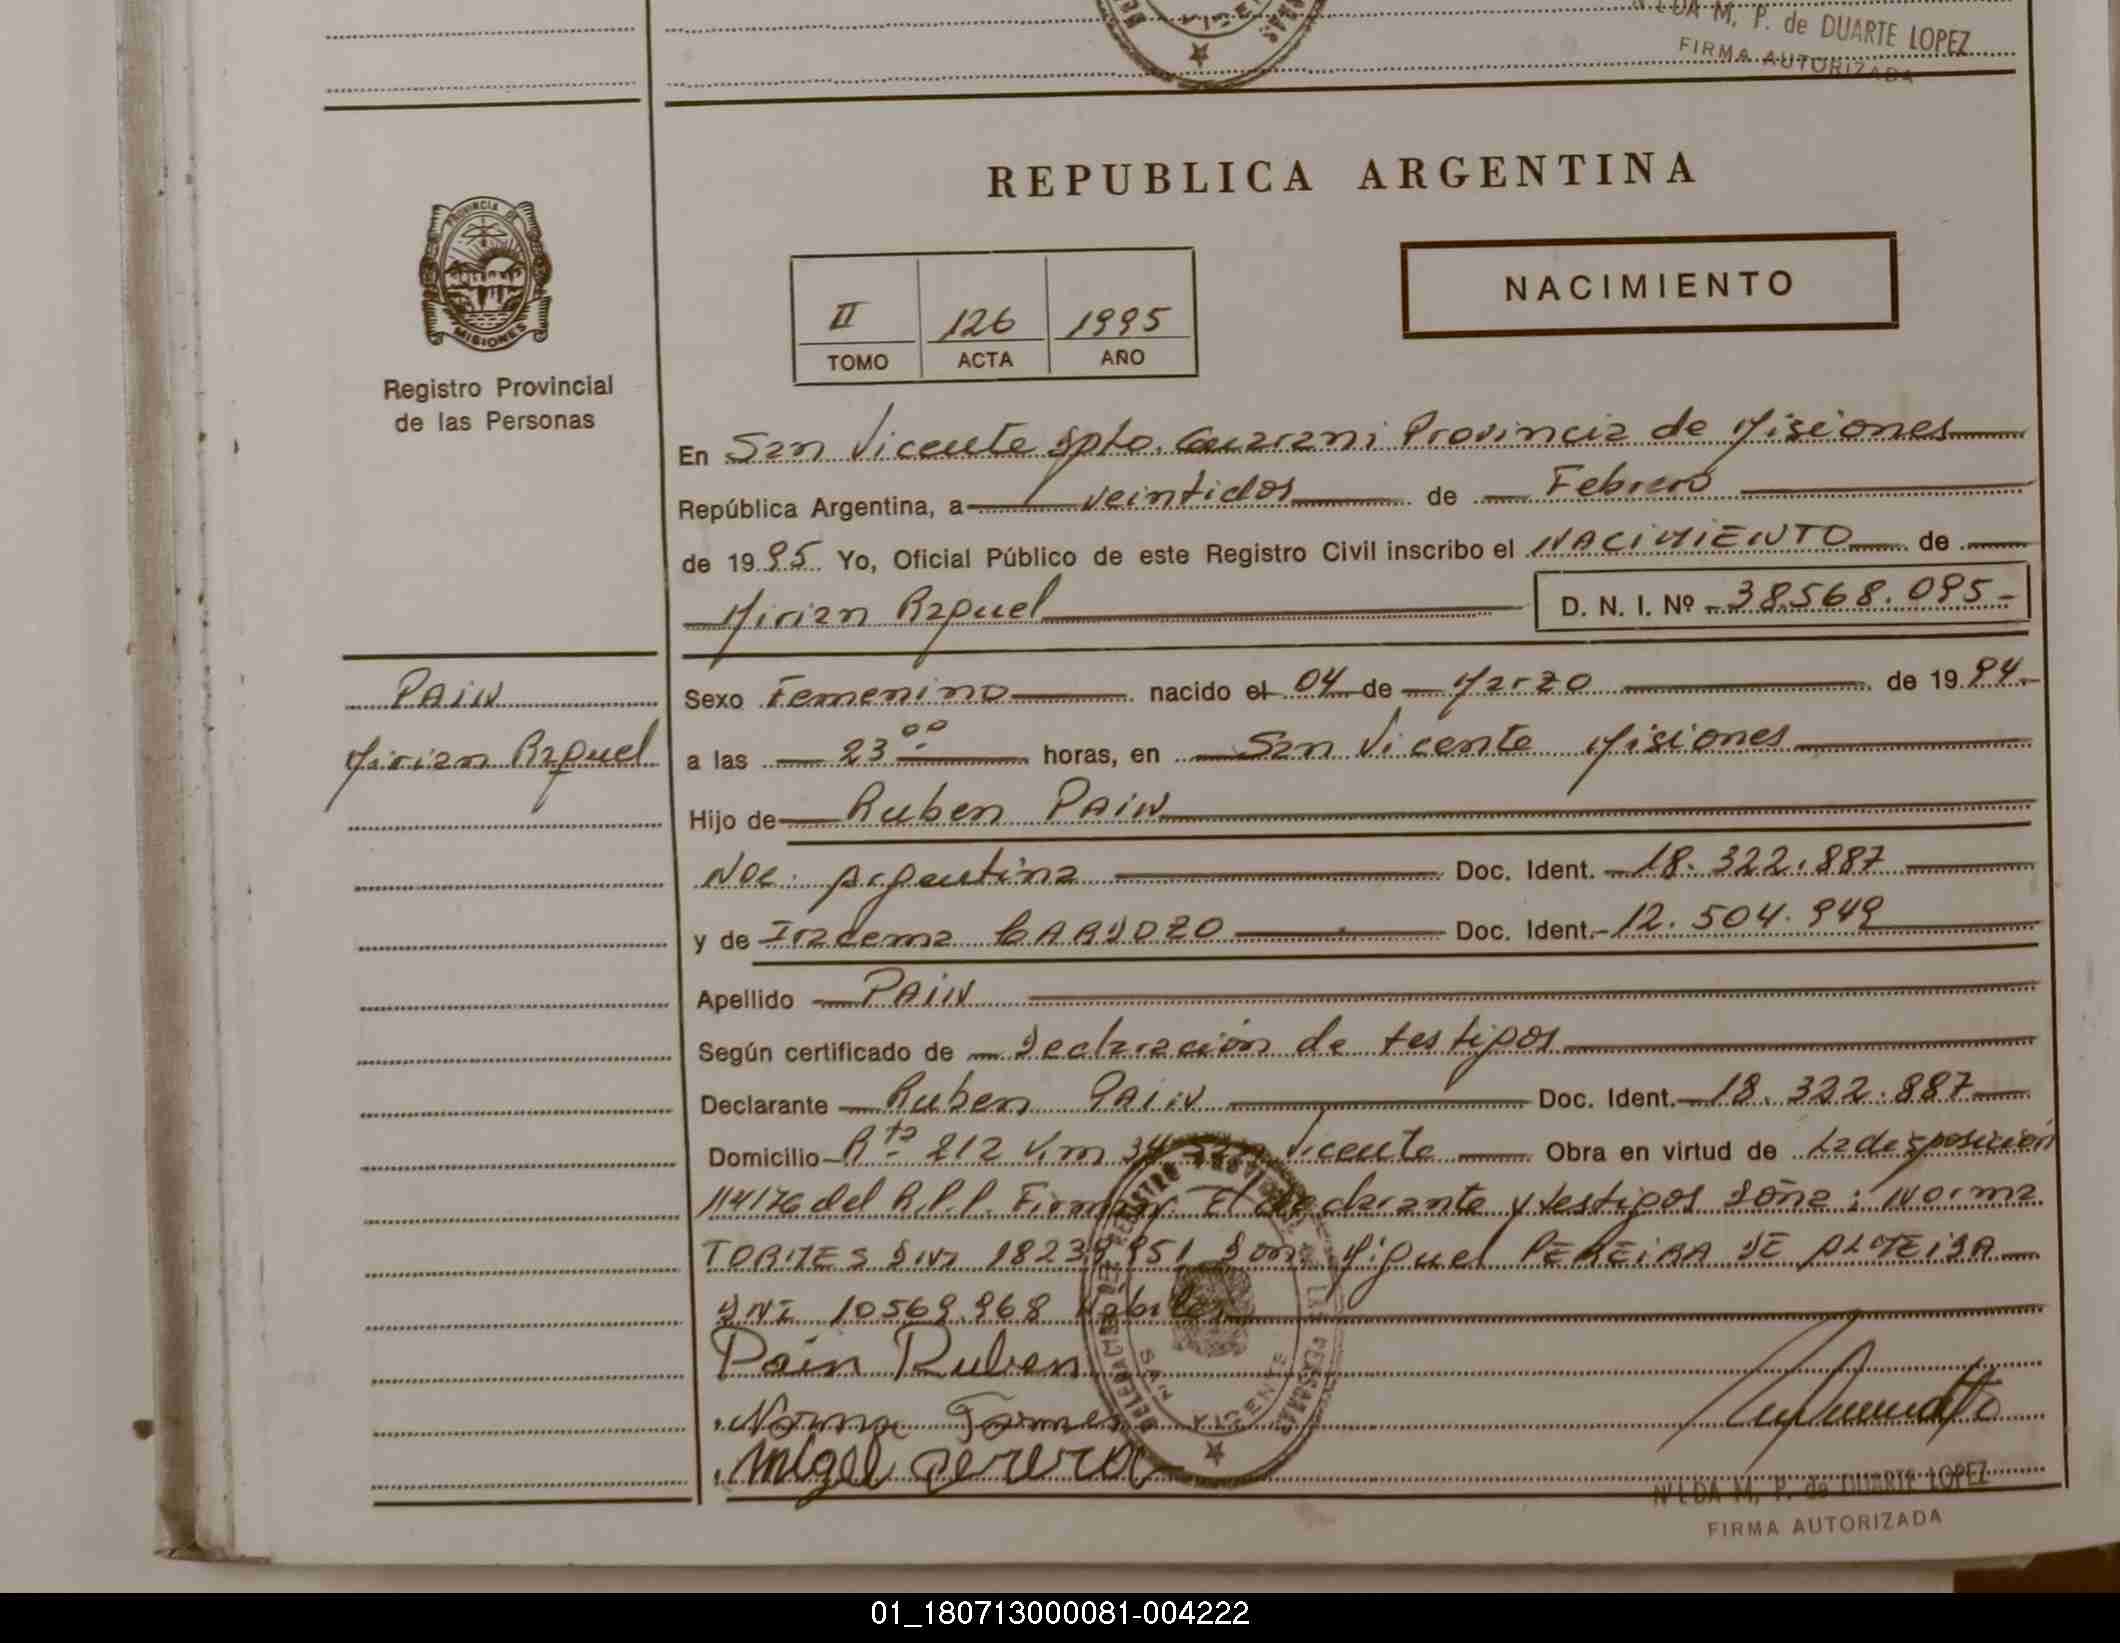 M. P. de DUARTE LOPEZ
FIRMA AUTORIZADA
REPUBLICA ARGENTINA
PROVINCIA DE
MISIONES
Registro Provincial
de las Personas
II 126 1995
TOMO ACTA AÑO
NACIMIENTO
En San Vicente Dpto. Guarani Provincia de Misiones
República Argentina, a veintidos de Febrero
de 1995 Yo, Oficial Público de este Registro Civil inscribo el NACIMIENTO de
Mirian Raquel D. N. I. Nº 38.568.095-
PAIN
Mirian Raquel
Sexo Femenino nacido el 04 de Marzo de 1994
a las 23 00 horas, en San Vicente Misiones
Hijo de Ruben PAIN
Nac. Argentina Doc. Ident. 18.322.887
y de Iracema CARDOZO Doc. Ident. 12.504.949
Apellido PAIN
Según certificado de Declaración de testigos
Declarante Ruben PAIN Doc. Ident. 18.322.887
Domicilio Rta 212 Km 34 San Vicente Obra en virtud de La desposición
114/76 del R.P.P. Firman: El declarante y testigos Doña: Norma
TORRES DNI 18239951 Don Miguel PEREIRA DE ALMEIDA
DNI 10569.968 Habiles
Pain Ruben
Norma Torres
Migel Perera
SAN VICENTE
NILDA M. P. de DUARTE LOPEZ
FIRMA AUTORIZADA
01_180713000081-004222